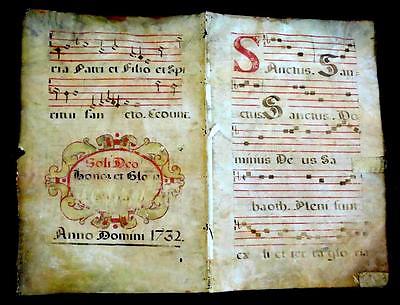 ria Patri et Filio et Spi
ritui san cto. Ecouue.
Soli Deo
Honor et Glo
Anno Domini 1732.
Sanctus. San
ctus. Sanctus. Do
minus De us Sa
baoth. Pleni sunt
cx li et ter ra glo ria